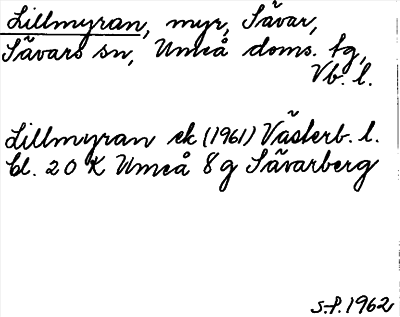 Lillmyran, myr, Sävar,
Sävars sn, Umeå doms. tg,
Vb. l.
Lillmyran ek (1961) Västerb. l.
bl. 20 K Umeå 8 g Sävarberg
S.F. 1962